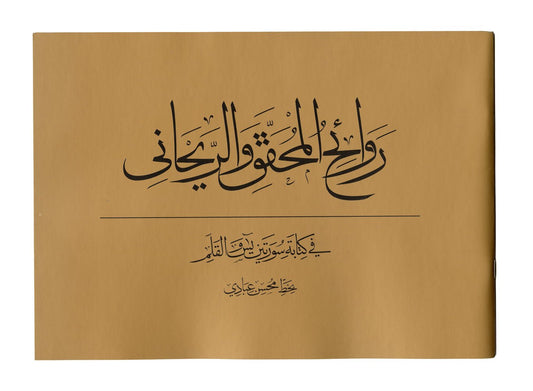 رَوَائِحُ المُحَقَّقِ وَالرَّيْحَانِي
في كِتابَةِ سُورَتَيْنِ يٰسٓ وَ القَلَم
بخطِّ مُحسن عبادي